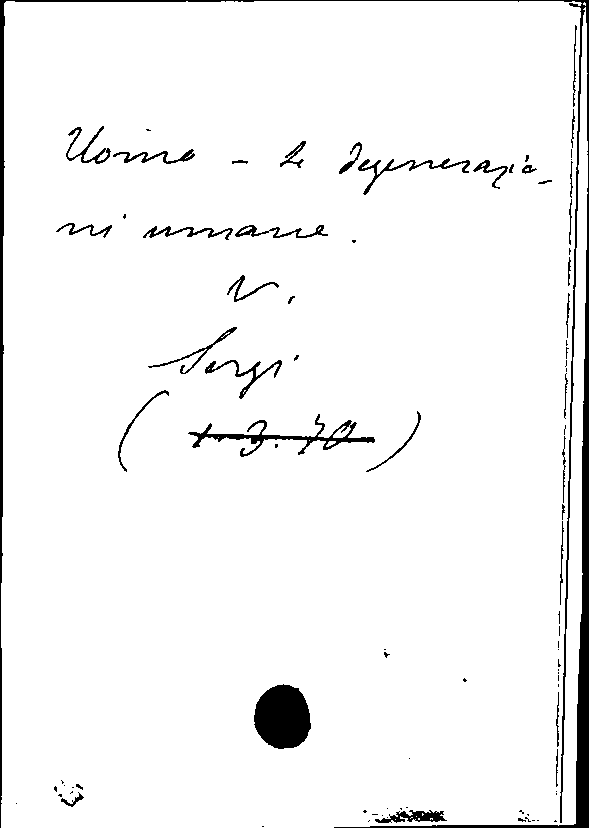 Uomo - Le degenerazio-
ni umane.
V.
Sergi
(1.3.70)